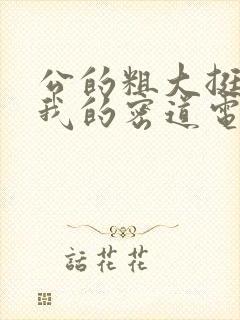 公的粗大挺
我的密道電
話花花